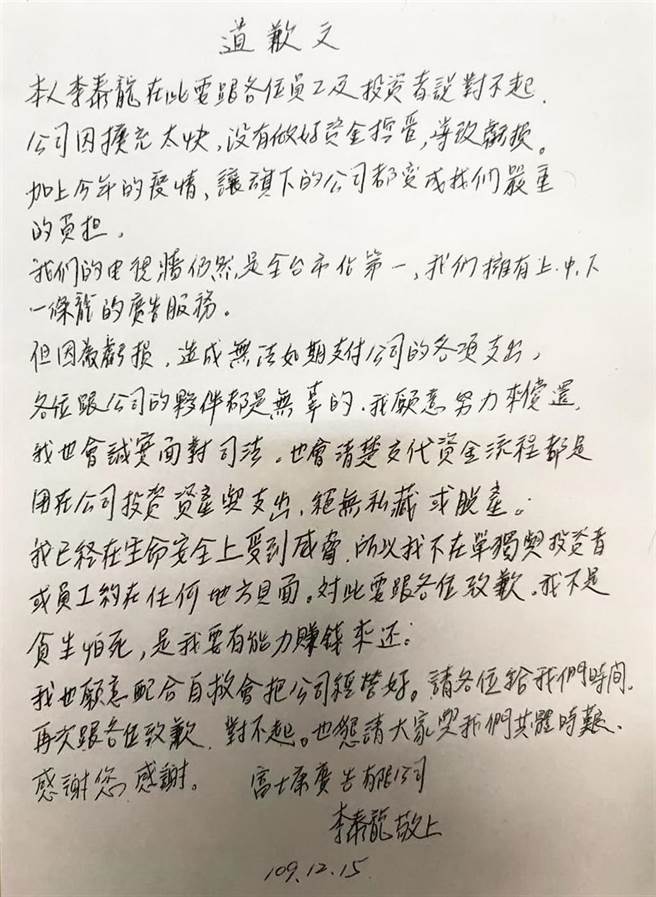 道歉文
本人李泰龍在此要跟各位員工及投资者説對不起.
公司因擴充太快,没有做好資金控管,導致虧损。
加上今年的疫情,讓旗下的公司都变成我们嚴重
的負担。
我们的电視牆仍然是全台市佔第一,我们擁有上.中.下
一條龍的廣告服務。
但因為虧損,造成無法如期支付公司的各項支出,
各位跟公司的夥伴都是無辜的.我願意努力來償還.
我也會誠實面對司法。也會清楚交代資金流程都是
用在公司投資資產與支出,絕無私藏或脱產。
我已経在生命安全上受到威脅.所以我不在單獨與投資者
或員工約在任何地方見面。对此要跟各位致歉。我不是
貪生怕死,是我要有能力賺錢來还。
我也願意配合自救會把公司經營好。請各位給我們時間.
再次跟各位致歉.對不起。也懇請大家與我們共體時艱.
感謝您感謝。 富士康廣告有限公司
李泰龍敬上
109.12.15.